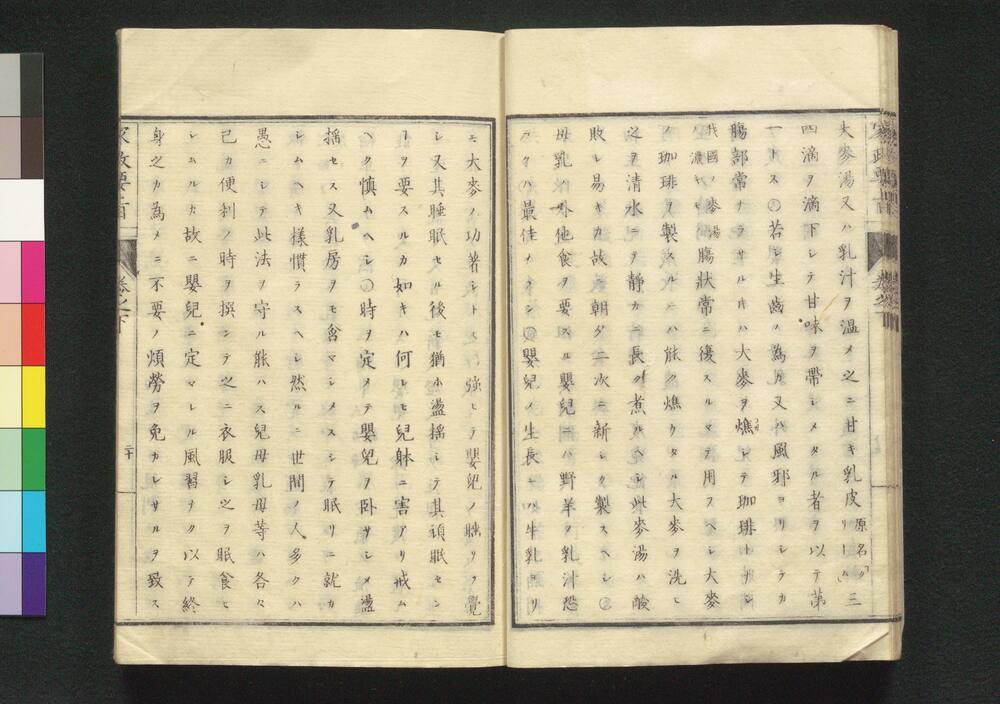 大麥湯又ハ乳汁ヲ温メ之ニ甘キ乳皮原名クリーム三
四滴ヲ滴下シテ甘味ヲ帶シメタル者ヲ以テ第
一トス○若シ生齒ノ為カ又ハ風邪ヨリシテカ
腸部常ナラサル時ハ大麥ヲ燋シテ珈琲トナシ
我國ノ麥湯ノ濃キモノ腸狀常ニ復スルマテ用フヘシ大麥
ノ珈琲ヲ製スルニハ能ク燋クタル大麥ヲ洗ヒ
之ヲ清水ニテ靜カニ長ク煮ルヘシ此麥湯ハ酸
敗シ易キカ故ニ朝夕二次ニ新シク製スヘシ○
母乳ノ外他食ヲ要スル嬰兒ニハ野羊ノ乳汁恐
ラクハ最佳ナラン○嬰兒ノ生長ニハ牛乳ヨリ
家政要旨 卷之下
モ大麥ノ功著シトス○強ヒテ嬰兒ノ睡リヲ覺
シ又其睡眠セル後モ猶ホ盪揺シテ其頑眠セン
ヿヲ要スルカ如キハ何レモ兒躰ニ害アリ戒ム
ヘク慎ムヘシ○時ヲ定メテ嬰兒ヲ臥サシメ盪
揺セス又乳房ヲモ含マシメスシテ眠リニ就カ
シムヘキ樣慣ラスヘシ然ルニ世間ノ人多クハ
愚ニシテ此法ヲ守ル能ハス兒母乳母等ハ各々
己カ便利ノ時ヲ撰ンテ之ニ衣服シ之ヲ眠食セ
シムルカ故ニ嬰兒ニ定マレル風習ヲク以テ終
身之カ為メニ不要ノ煩勞ヲ免カレサルヲ致ス
家政要旨 卷之下 二十